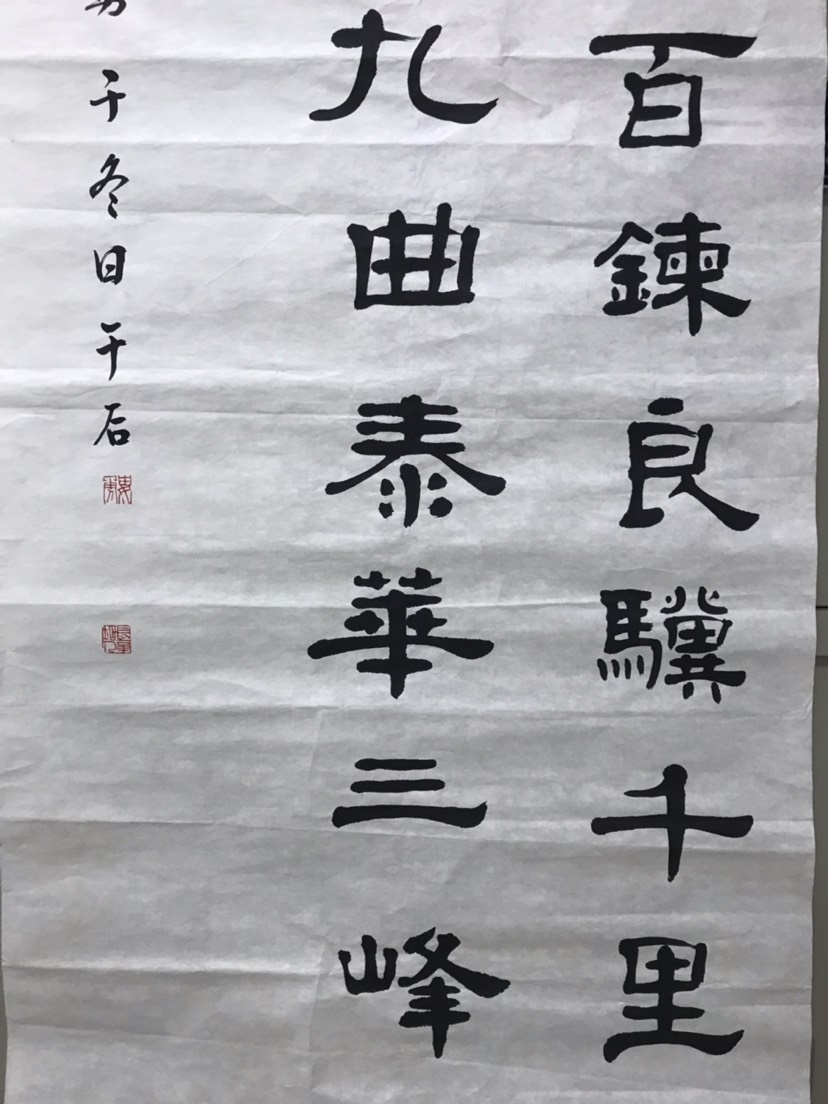 百鍊良驥千里
九曲泰華三峰
干冬日千石